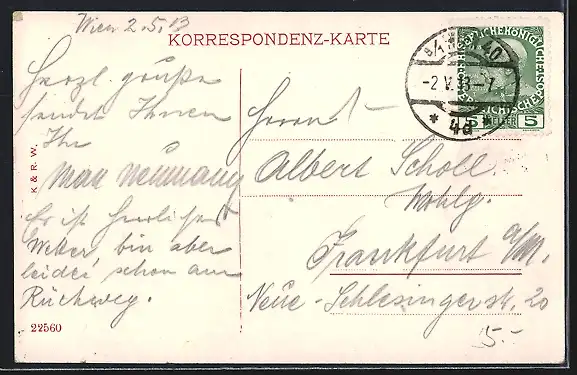 Wien 2.5.13
KORRESPONDENZ-KARTE
Herzl. Grüße
sendet Ihnen
Ihr
Max Neumann
Es ist herrliches
Wetter, bin aber
leider schon am
Rückweg.
K & R. W.
22560
Herrn
Albert Scholl
Wohlg.
Frankfurt a/M.
Neue-Schlesingerstr. 20
5.-
-2.V.13-7
* 4d *
5 HELLER 5